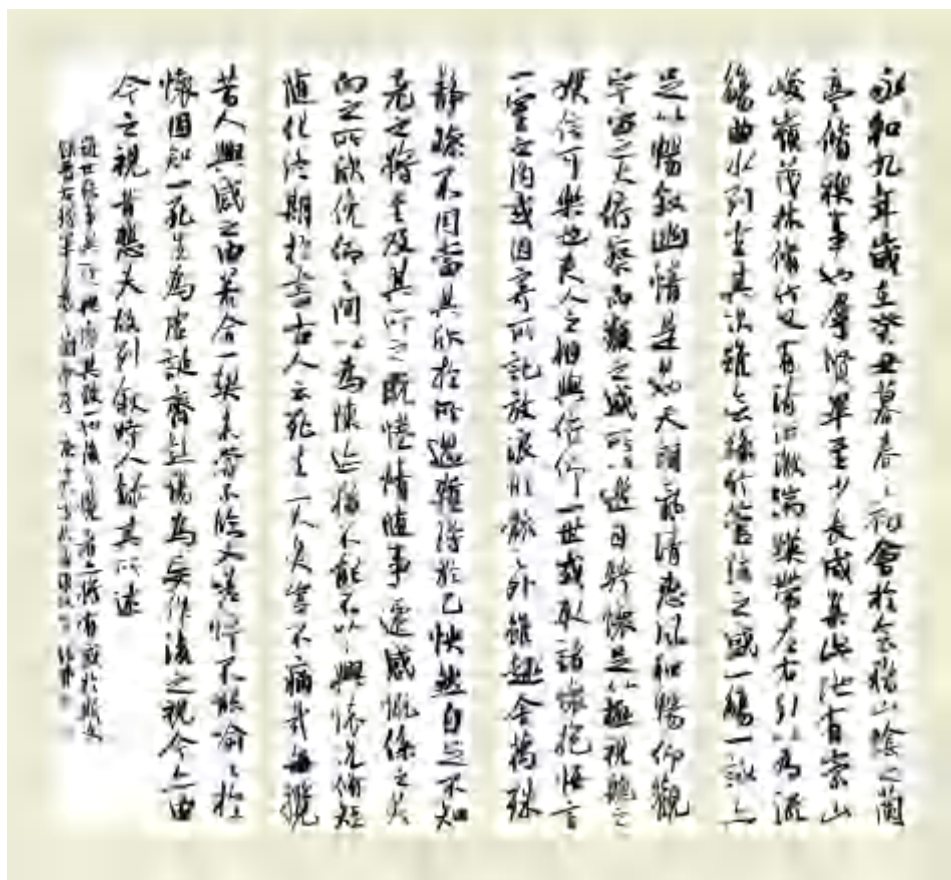 永和九年歲在癸丑暮春之初會於會稽山陰之蘭
亭脩稧事也羣賢畢至少長咸集此地有崇山
峻嶺茂林脩竹又有清流激湍暎帶左右引以為流
觴曲水列坐其次雖無絲竹管弦之盛一觴一詠亦
足以暢敘幽情是日也天朗氣清惠風和暢仰觀
宇宙之大俯察品類之盛所以遊目騁懷足以極視聽之
娛信可樂也夫人之相與俯仰一世或取諸懷抱悟言
一室之內或因寄所託放浪形骸之外雖趣舍萬殊
靜躁不同當其欣於所遇暫得於己快然自足不知
老之將至及其所之既惓情隨事遷感慨係之矣
向之所欣俛仰之間以為陳迹猶不能不以之興懷況脩短
隨化終期於盡古人云死生亦大矣豈不痛哉每攬
昔人興感之由若合一契未嘗不臨文嗟悼不能喻之於
懷固知一死生為虛誕齊彭殤為妄作後之視今亦由
今之視昔悲夫故列敘時人錄其所述
雖世殊事異所以興懷其致一也後之覽者亦將有感於斯文